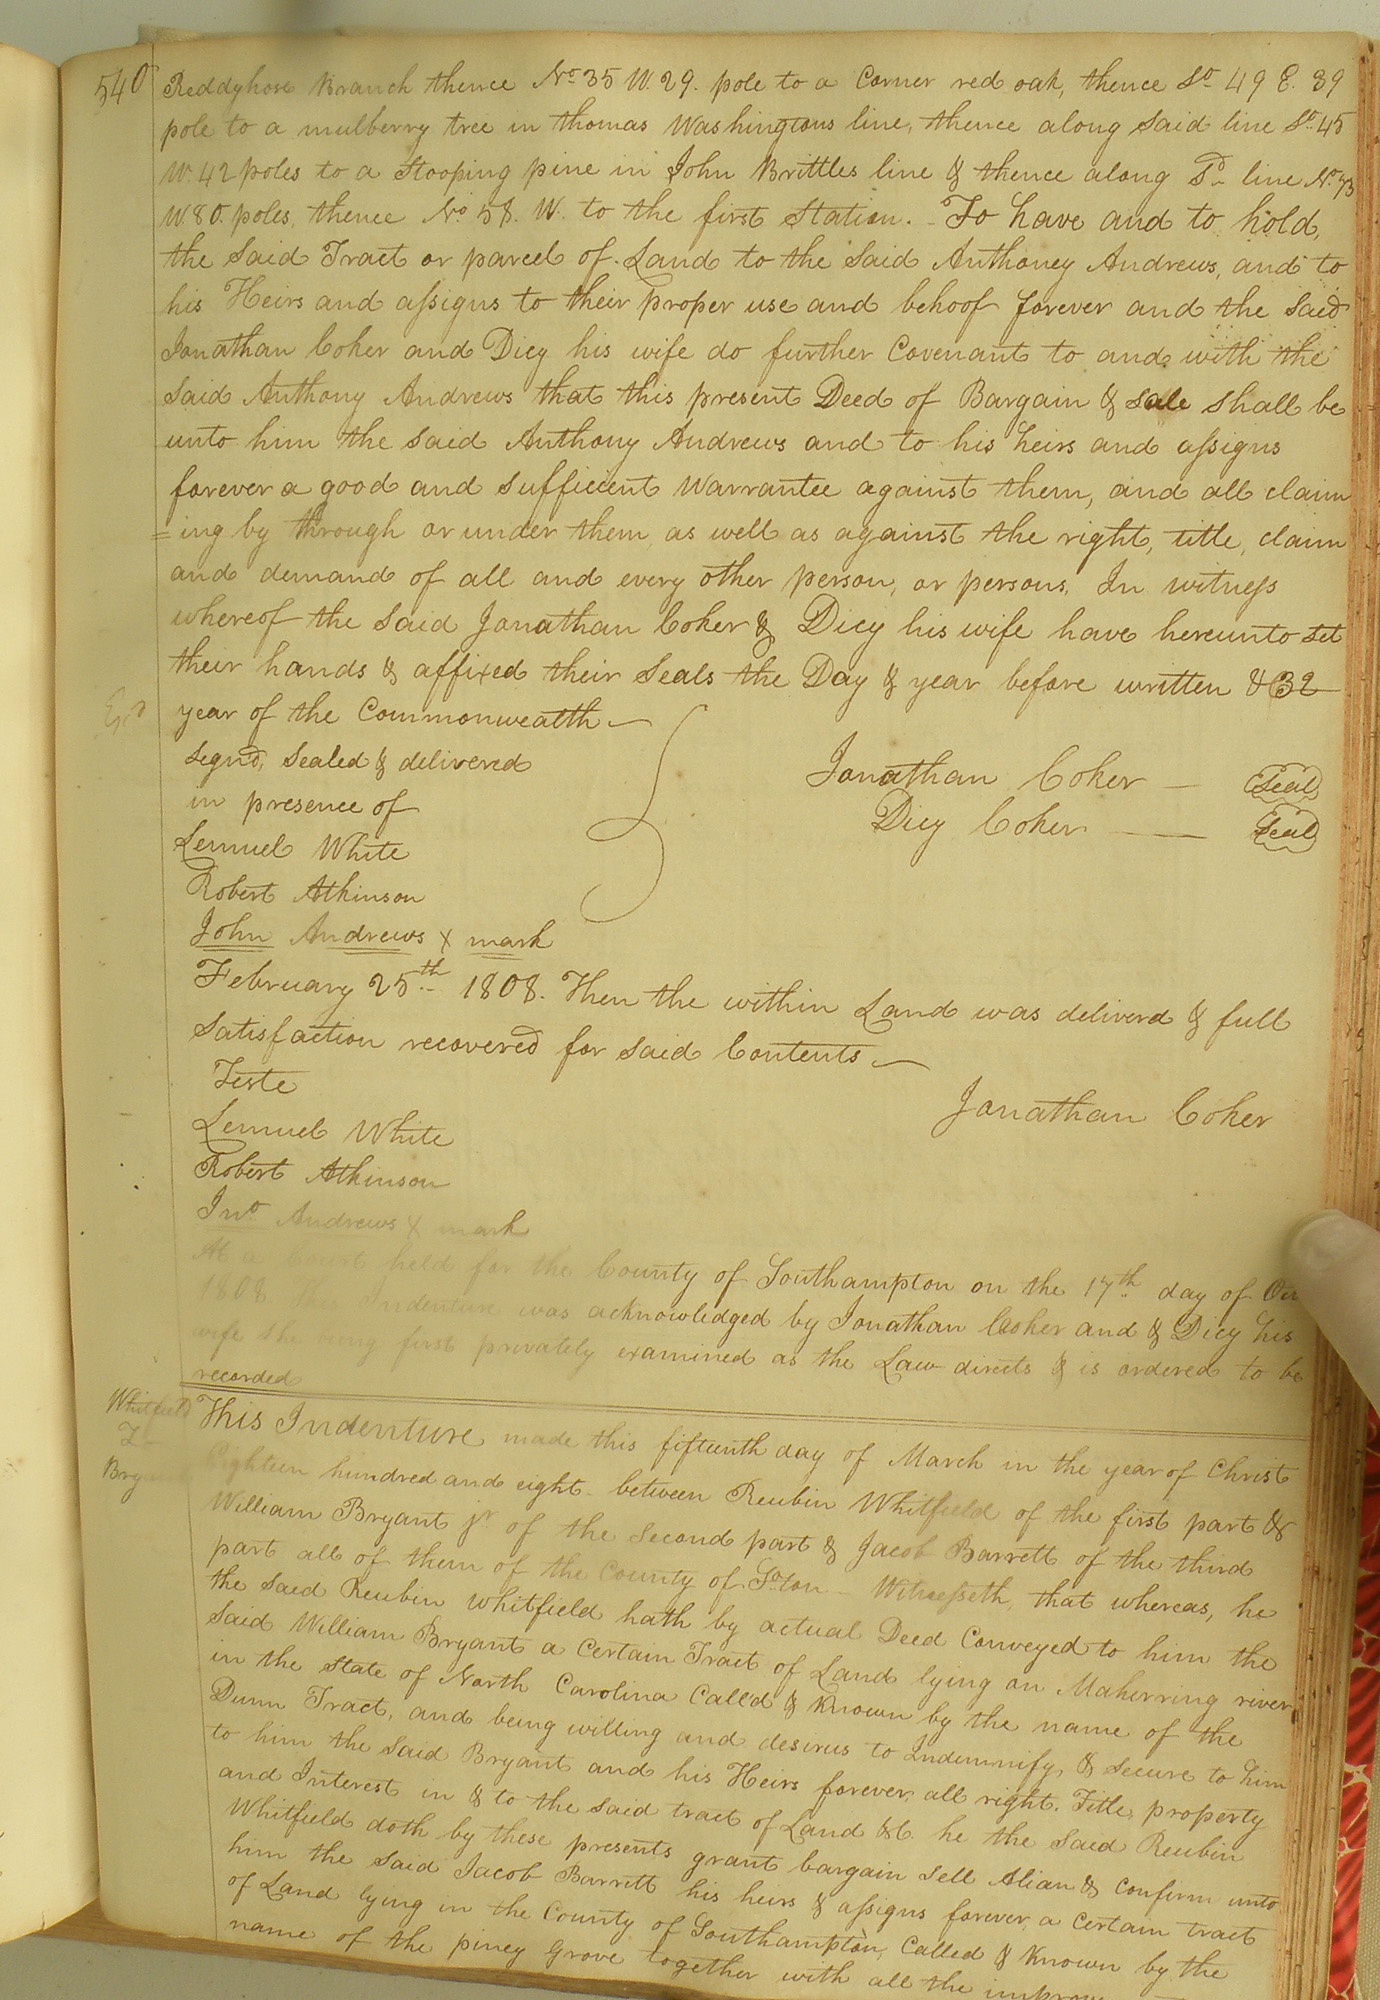 540
Reddyhose Branch thence No 35 W. 29. pole to a Corner red oak, thence So 49 E. 39
pole to a mulberry tree in thomas Washingtons line, thence along said line So. 45
W. 42 poles to a Stooping pine in John Brittles line & thence along Sd line No. 73
W 80. poles, thence No 58. W. to the first Station. To have and to hold,
the said Tract or parcel of Land to the said Anthoney Andrews, and to
his Heirs and assigns to their proper use and behoof forever and the said
Jonathan Coker and Dicy his wife do further Covenant to and with the
said Anthony Andrews that this present Deed of Bargain & sale shall be
unto him the said Anthony Andrews and to his heirs and assigns
forever a good and sufficient Warrantee against them, and all claim
=ing by through or under them, as well as against the right, title, claim
and demand of all and every other person, or persons, In witness
whereof the said Jonathan Coker & Dicy his wife have hereunto set
their hands & affixed their seals the Day & year before written & 32
year of the Commonwealth
Signd, Sealed & delivered
in presence of
Jonathan Coker — Seal
Dicy Coker — Seal
Lemuel White
Robert Atkinson
John Andrews x mark
February 25th 1808. Then the within Land was deliverd & full
satisfaction recovered for said Contents
Teste
Jonathan Coker
Lemuel White
Robert Atkinson
Jno Andrews x mark
At a Court held for the County of Southampton on the 17th day of
1808 This Indenture was acknowledged by Jonathan Cooker and & Dicy his
wife she being first privately examined as the Law directs & is ordered to be
recorded
Whitfield
To
This Indenture made this fifteenth day of March in the year of Christ
Eighteen hundred and eight between Reubin Whitfield of the first part &
William Bryant jr of the second part & Jacob Barrett of the third
part all of them of the County of So.ton Witnesseth, that whereas, he
the said Reubin Whitfield hath by actual Deed Conveyed to him the
said William Bryant a Certain Tract of Land lying on Maherring river
in the State of North Carolina Call'd & Known by the name of the
Dunn Tract, and being willing and desirus to Indemnify & secure to him
to him the said Bryant and his Heirs forever, all right. Title, property
and Interest in & to the said tract of Land &C. he the said Reubin
Whitfield doth by these presents grant bargain sell Alian & Confirm unto
him the said Jacob Barrett his heirs & assigns forever, a Certain tract
of Land lying in the County of Southampton, Called & Known by the
name of the piney Grove together with all the